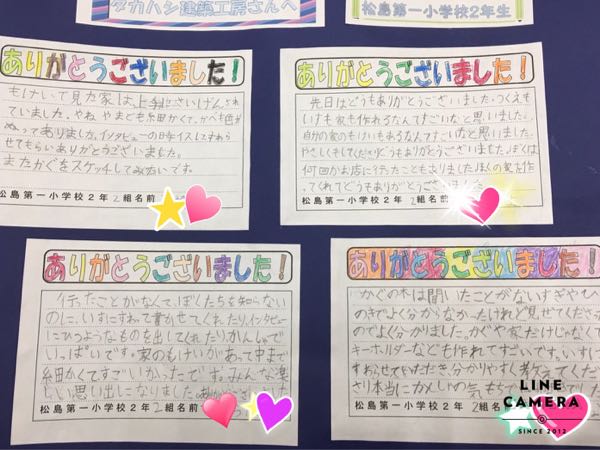 タカハシ建築工房さんへ
松島第一小学校2年生
ありがとうございました!
もけいで見た家は上手にさいげんされ
ていました。やね やまども細かくて、かべも色が
ぬってありました。インタビューの日年イスしてすわら
せてもらいありがとうございました。
またかぐをスケッチしてみたいです。
松島第一小学校2年2組名前
ありがとうございました!
先日はどうもありがとうございました。つくえも
いすも家も作れるなんてすごいなと思いました。
自分の家のもけいもあるなんてすごいなと思いました。
やさしくもしてくださりどうもありがとうございました。ぼくは
何回かお店に行ったこともありましたぼくの家も作
ってくれてどうもありがとうございました
松島第一小学校2年2組名前
ありがとうございました!
行ったことがなくて、ぼくたちを知らない
のに、いすにすわって書かせてくれたり、インタビュー
にひつようなものを出してくれたり、かんしゃで
いっぱいです。家のもけいがあって中まで
細かくてすごいかったです。みんな楽
しい思い出になりました。ありがとうございました
松島第一小学校2年2組名前
ありがとうございました!
かぐの木は聞いたことがないすぎやひ
のきでよく分からなかったけれど見せてくださった
のでよく分かりました。かぐや家だけじゃなくて
キーホルダーなども作れてすごいです。いすに
すわらせていただき、分かりやすく教えてくだ
さり本当にかんしゃの気もち
松島第一小学校2年2組名前
LINE
CAMERA
SINCE 2012